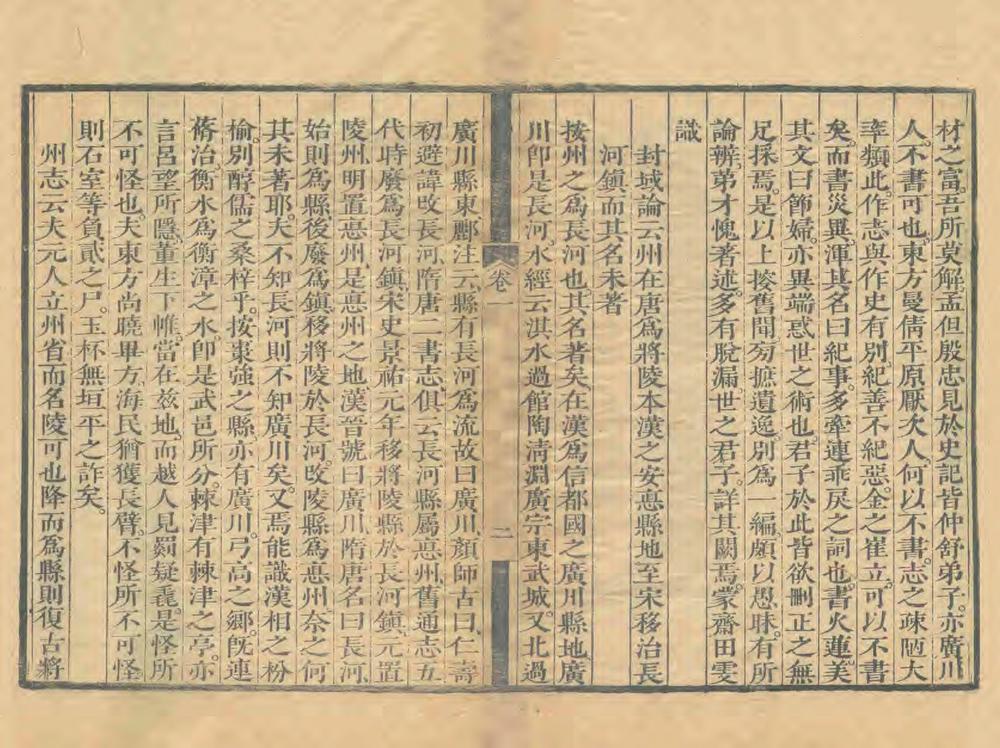 材之富吾所莫解孟但殷忠見於史記皆仲舒弟子亦廣川
人不書可也東方曼倩平原厭次人何以不書志之疎陋大
率類此作志與作史有別紀善不紀惡金之崔立可以不書
矣而書災異渾其名曰紀事多牽連乖戾之詞也書火蓮美
其文曰節婦亦異端惑世之術也君子於此皆欲刪正之無
足採焉是以上接舊聞旁摭遺逸別為一編頗以愚昧有所
論辨弟才愧著述多有脫漏世之君子詳其闕焉蒙齋田雯
識
封域論云州在唐爲將陵本漢之安悳縣地至宋移治長
河鎮而其名未著
按州之爲長河也其名著矣在漢爲信都國之廣川縣地廣
川卽是長河水經云淇水過館陶淸淵廣宗東武城又北過
卷一
二
廣川縣東酈注云縣有長河爲流故曰廣川顏師古曰仁壽
初避諱改長河隋唐二書志俱云長河縣屬悳州舊通志五
代時廢爲長河鎮宋史景祐元年移將陵縣於長河鎮元置
陵州明置悳州是悳州之地漢晉號曰廣川隋唐名曰長河
始則爲縣後廢爲鎮移將陵於長河改陵縣爲悳州奈之何
其未著耶夫不知長河則不知廣川矣又焉能識漢相之枌
榆別醇儒之桑梓乎按棗強之縣亦有廣川弓高之鄉旣連
脩治衡水爲衡漳之水卽是武邑所分棘津有棘津之亭亦
言呂望所隱董生下帷當在茲地而越人見罽疑毳是怪所
不可怪也夫東方尙曉畢方海民猶獲長臂不怪所不可怪
則石室等負貳之尸玉杯無垣平之詐矣
州志云大元人立州省而名陵可也降而爲縣則復古將